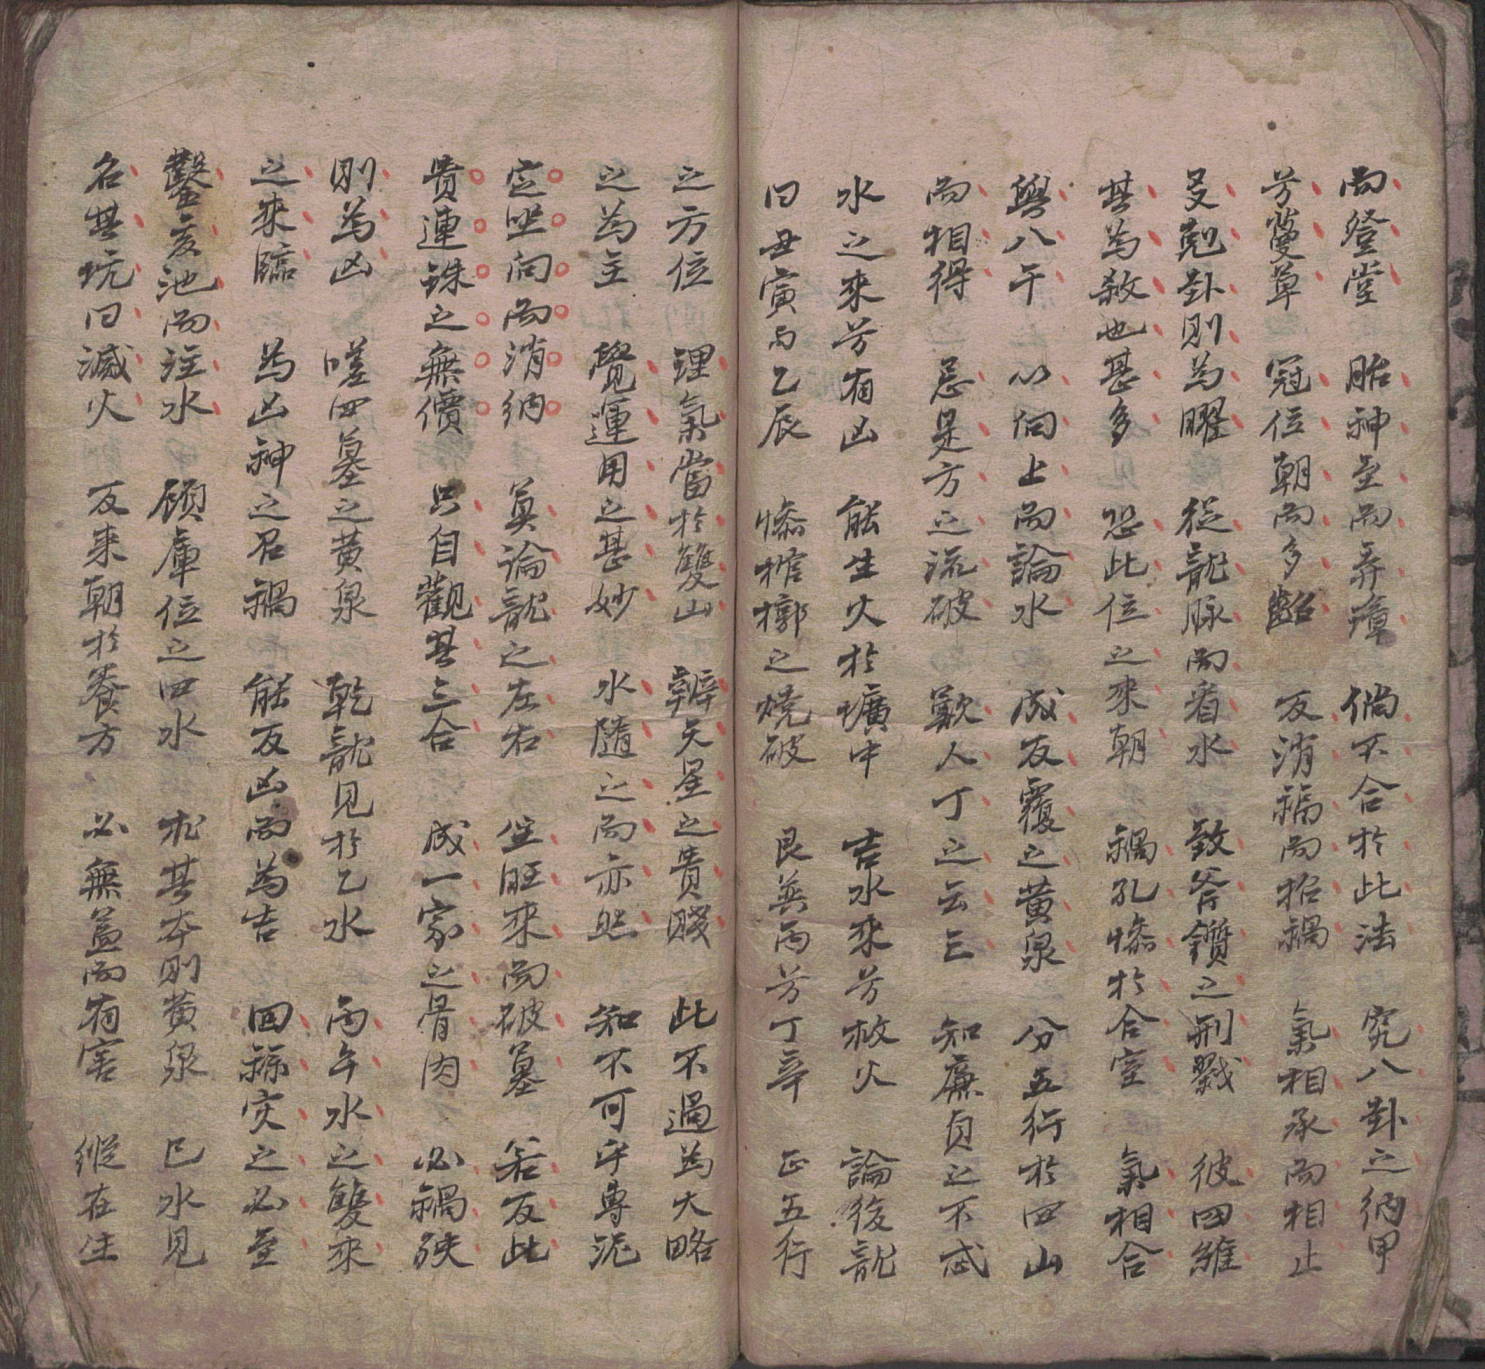 而登堂 胎神至而弄璋 倘不合於此法 究八卦之納甲
兮蔓草 冠位朝而多齠 反消禍而招禍 氣相承而相止
爻剋卦則為曜 從龍脉而看水 致斧鑕之刑戮 彼四維
其為殺也甚多 恐此位之來朝 禍孔慘於合室 氣相合
與八干 以向上而論水 成反覆之黄泉 分五行於四山
而相得 忌是方之流破 歎人丁之云亡 知廉貞之不忒
水之來兮有凶 能生火於壙中 吉水來兮救火 論後龍
曰丑寅与乙辰 慘棺槨之燒破 艮巽丙兮丁辛 正五行
之方位 理氣當於雙山 辨天星之貴賤 此不過為大略
之為主 覺運用之甚妙 水隨之而亦然 知不可乎專泥
定坐向而消納 莫論龍之左右 生旺來而破墓 若反此
貴連銖之無價 只自觀其三合 成一家之骨肉 必禍殃
則為凶 嗟四墓之黄泉 乾龍見於乙水 丙午水之雙來
之來臨 為凶神之召禍 能反凶而為吉 回祿灾之必至
鑿亥池而注水 顧庫位之四水 於其本則黄泉 巳水見
名其坑曰滅火 反来朝於養方 必無益而有害 縱在生